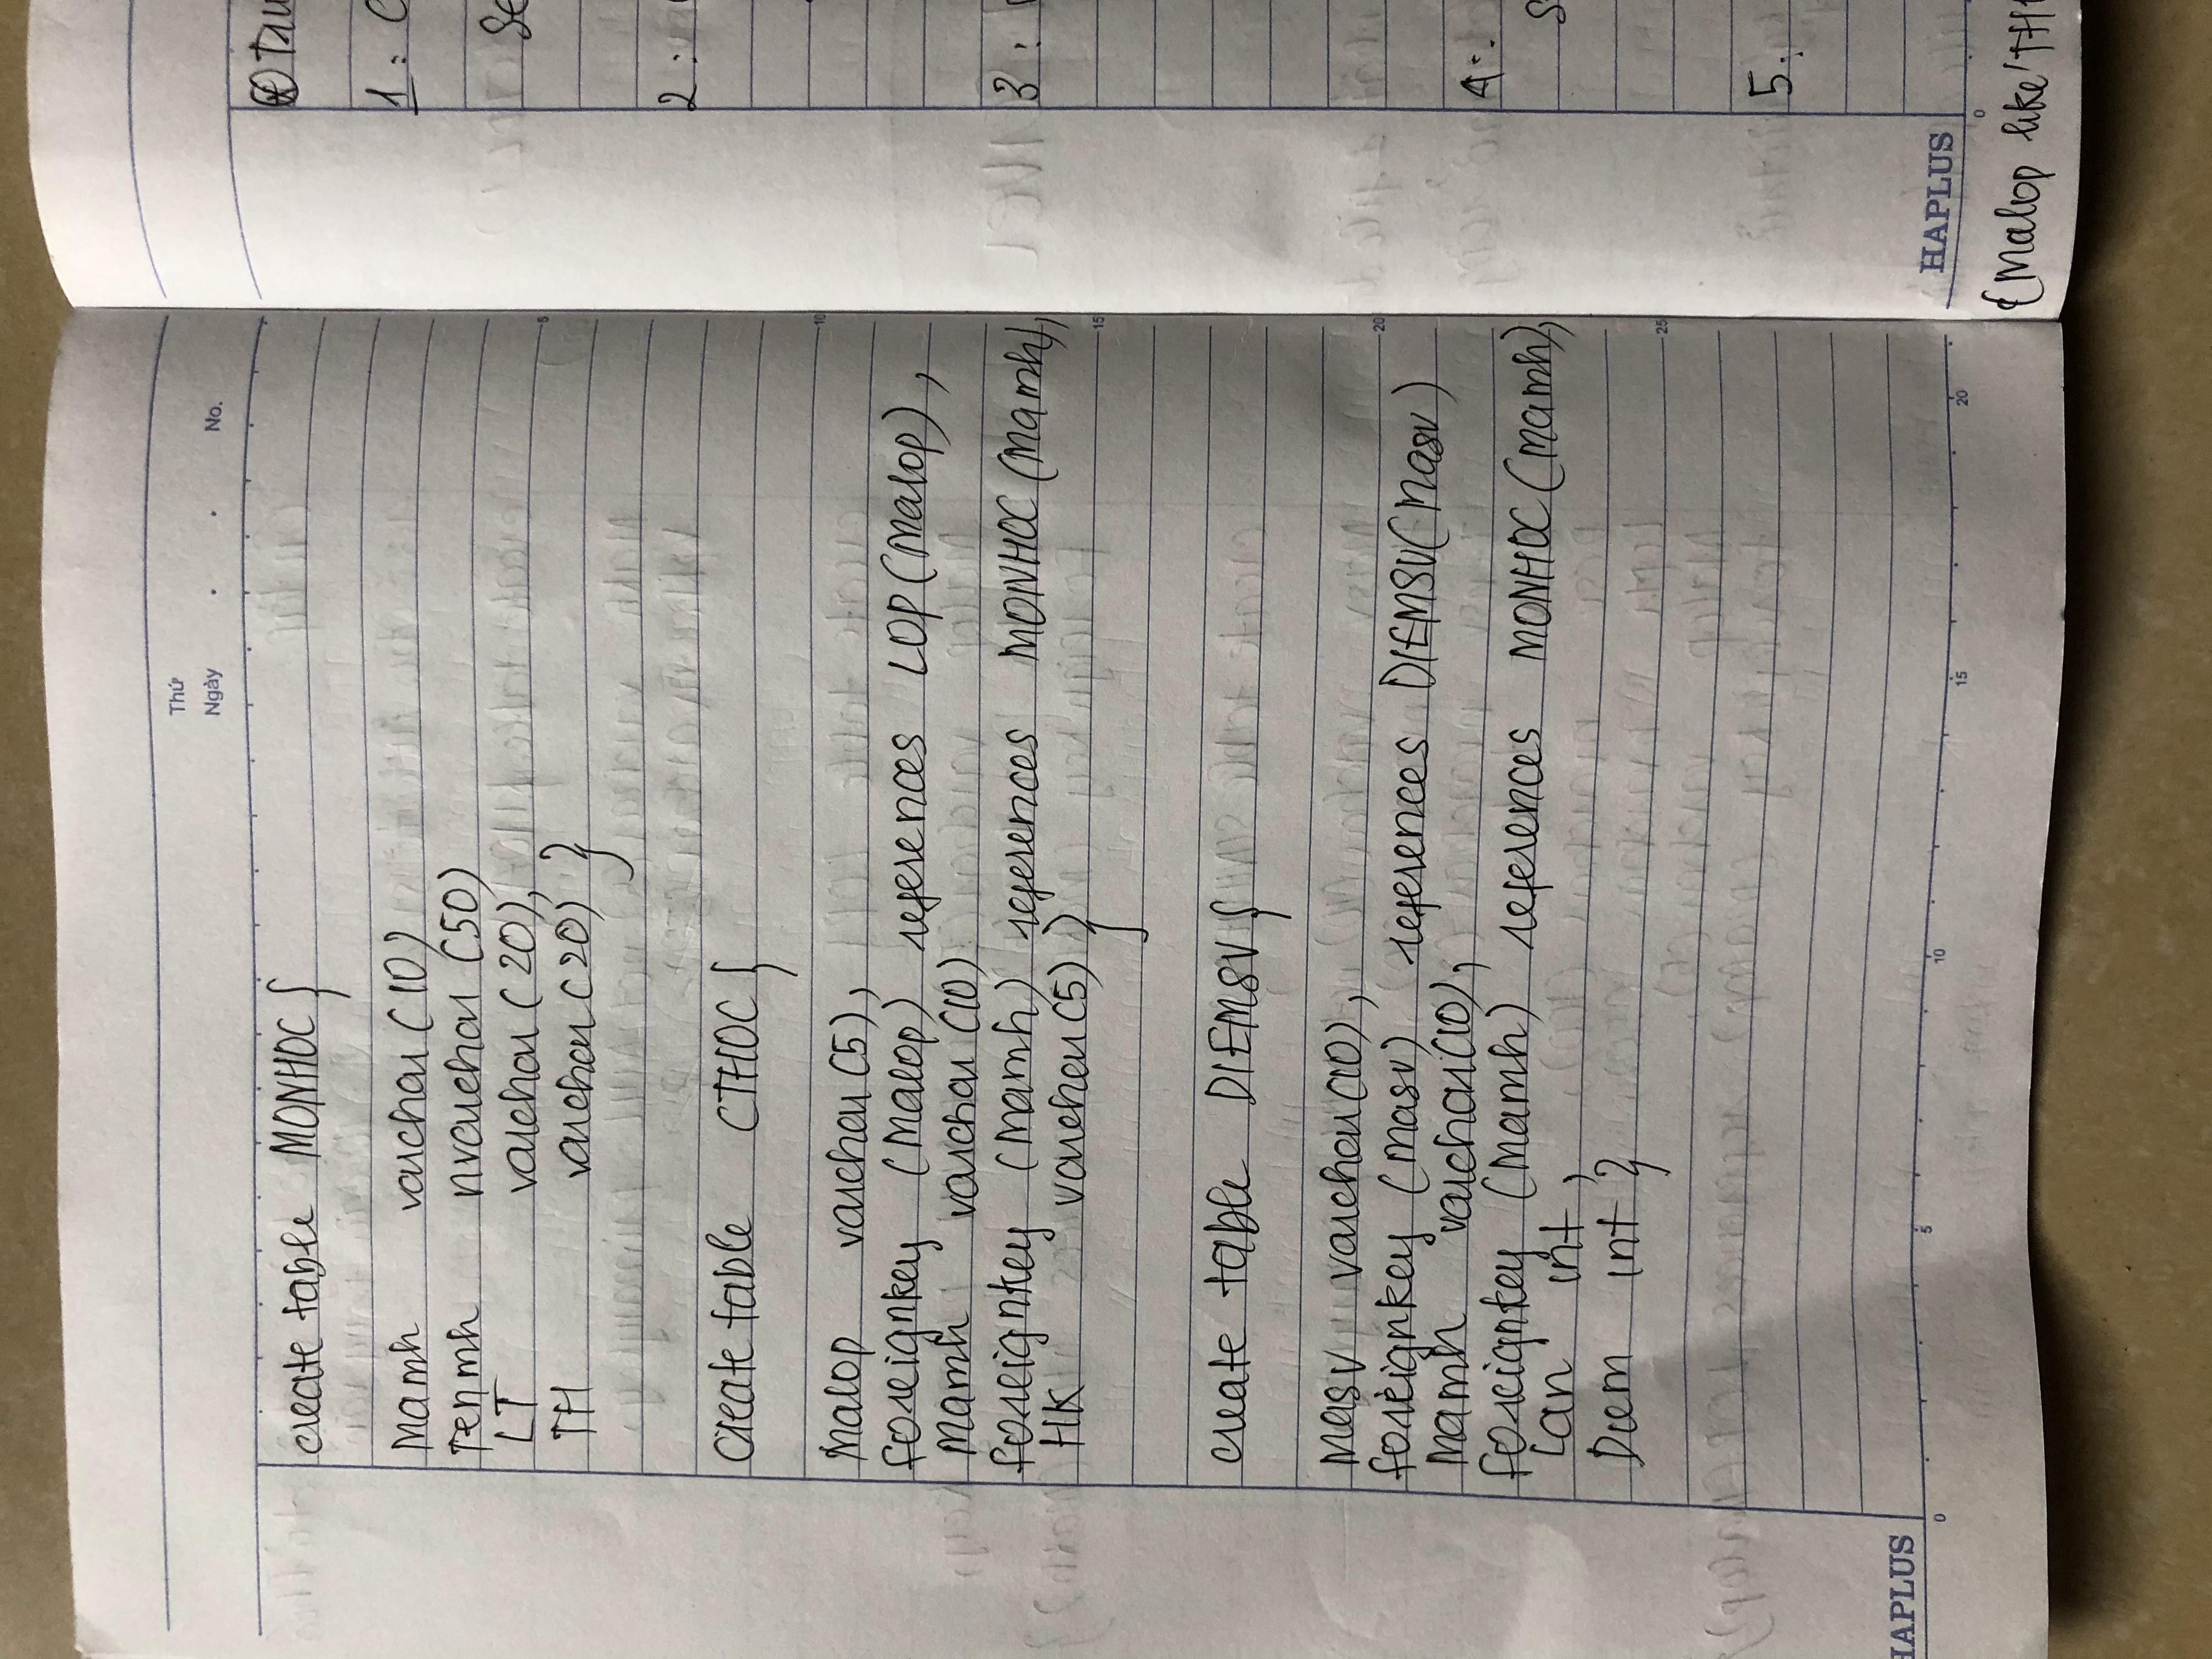 Thứ
Ngày . . No.
create table MONHOC {
Mamh varchar (10)
Tenmh nvarchar (50)
LT varchar (20),
TH varchar (20) }
create table CTHOC {
Malop varchar (5),
foreignkey (Malop) references LOP (Malop),
Mamh varchar (10)
foreignkey (Mamh) references MONHOC (Mamh),
HK varchar (5) }
create table DIEMSV {
Masv varchar (10),
foreignkey (Masv) references DIEMSV (Masv)
Mamh varchar (10),
foreignkey (Mamh) references MONHOC (Mamh),
Lan int,
Diem int }
HAPLUS
0 5 10 15 20
5
10
15
20
25
1:
2:
3:
4:
5.
HAPLUS
0
(Malop like 'TH